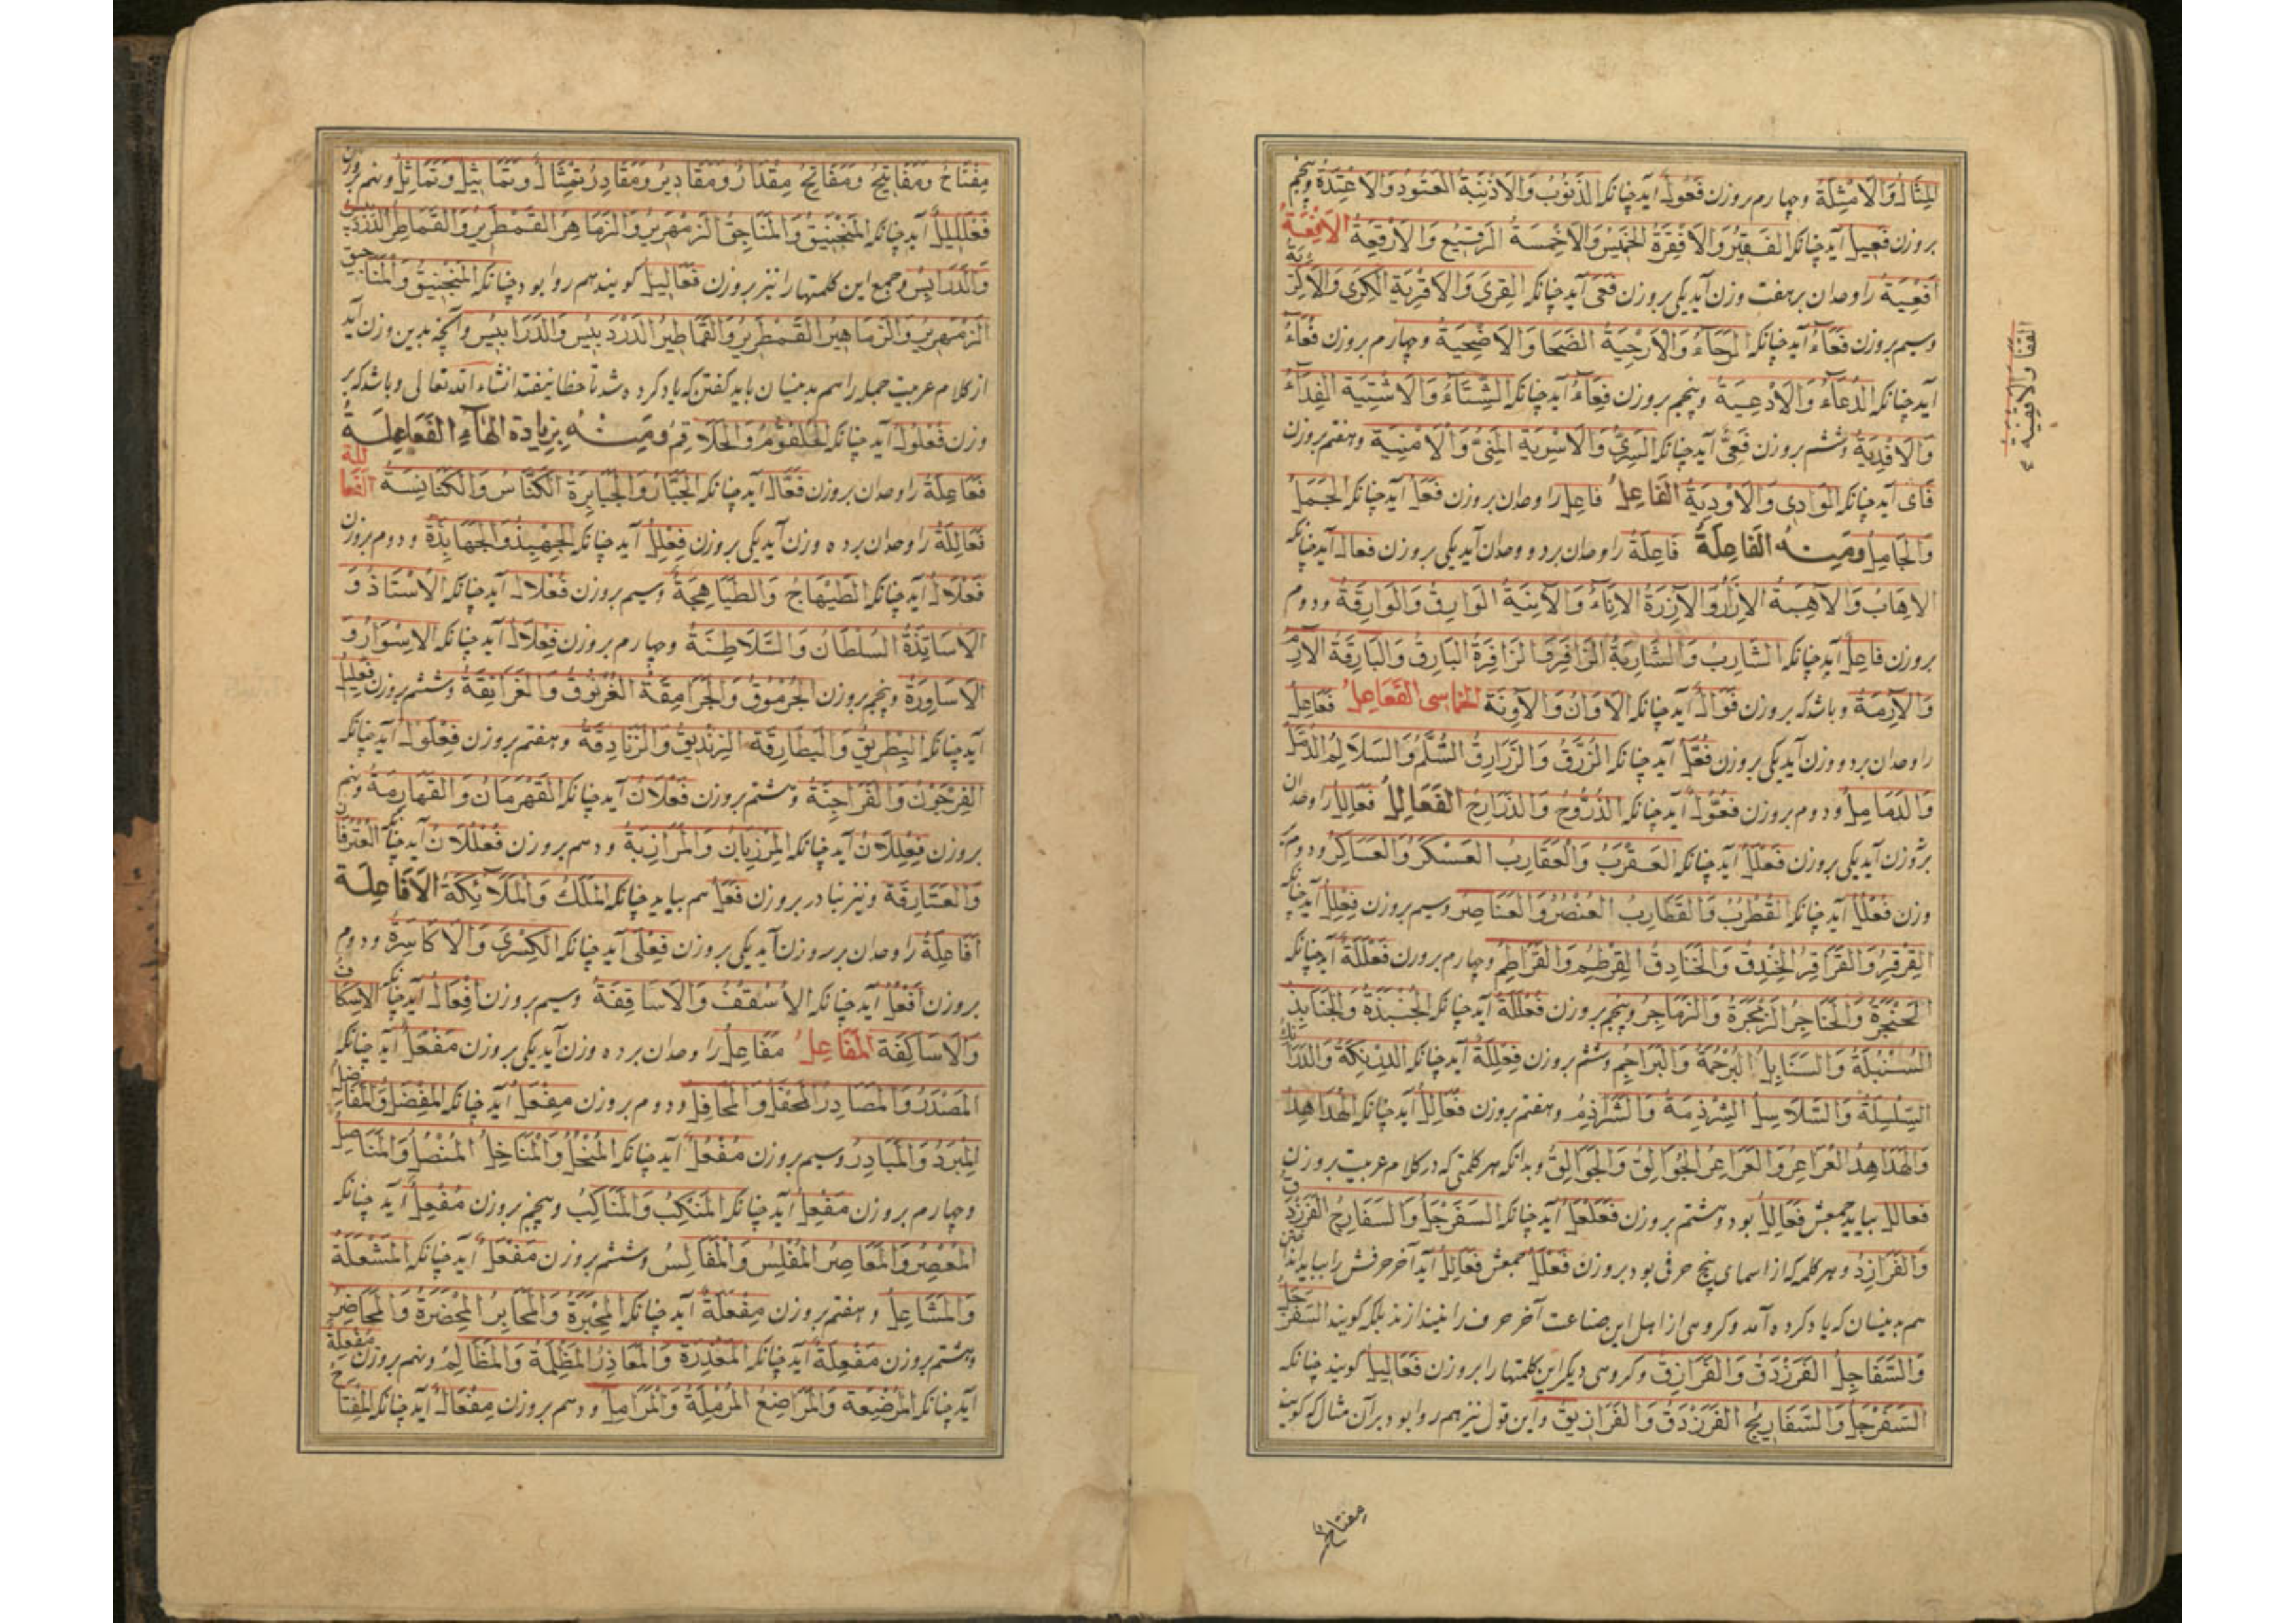 المِثَالُ وَالاَمْثِلَةُ وچهارم بروزن فَعُولٌ آید چنانکه الذَنُوبُ وَالاَذْنِبَةُ العَتُودُ وَالاَعْتِدَةُ وپنجم
بروزن فَعِيلٌ آید چنانکه الفَقِيْرُ وَالاَفْقِرَةُ الخَمِيْسُ وَالاَخْمِسَةُ الرَقِيْعُ وَالاَرْقِعَةُ الاَفْعِيَةُ
اَفْعِيَة را وحدان برهفت وزن آید یکی بروزن فَعَى آید چنانکه القِرَى وَالاَقْرِيَةُ الكِرَى وَالاَكْرِيَةُ
وسیم بروزن فَعَاءٌ آید چنانکه الرَجَاءُ وَالاَرْجِيَةُ الضَحَا وَالاَضْحِيَةُ وچهارم بروزن فُعَاءٌ
آید چنانکه الدُعَاءُ وَالاَدْعِيَةُ وپنجم بروزن فِعَاءٌ آید چنانکه الشِتَاءُ وَالاَشْتِيَةُ الفِدَاءُ
وَالاَفْدِيَةُ وششم بروزن فَعِىٌّ آید چنانکه السَرِىُّ وَالاَسْرِيَةُ المَنِىُّ وَالاَمْنِيَةُ وهفتم بروزن
فَاى آید چنانکه الوَادِى وَالاَوْدِيَةُ الفَاعِلُ فاعِل را وحدان بروزن فَعَلٌ آید چنانکه الجَمَلُ
وَالجَامِلُ ومنه الفَاعِلَةُ فَاعِلَةٌ را وحدان بر دو وحدان آید یکی بروزن فعال آید چنانکه
الاِهَابُ وَالآهِبَةُ الاِزَارُ وَالآزِرَةُ الاِنَاءُ وَالآنِيَةُ الوَارِقُ وَالوَارِقَةُ ودوم
بروزن فَاعِلٌ آید چنانکه الشَارِبُ وَالشَارِبَةُ الزَافِرُ وَالزَافِرَةُ البَارِقُ وَالبَارِقَةُ
وَالآرِمَةُ وباشد که بروزن فَوَالٌ آید چنانکه الاَوَانُ وَالآوِنَةُ الخماسى الفَعَاعِلُ فَعَاعِلُ
را وحدان بر دو وزن آید یکی بروزن فُعَّلٌ آید چنانکه الزُرَّقُ وَالزَرَارِقُ السُلَّمُ وَالسَلَالِمُ الدُمَّلُ
وَالدَمَامِلُ ودوم بروزن فُعُّولٌ آید چنانکه الذُرُّوحُ وَالذَرَارِحُ الفَعَالِلُ فَعَالِلُ را وحدان
وزن آید یکی بروزن فَعْلَلٌ آید چنانکه العَقْرَبُ وَالعَقَارِبُ العَسْكَرُ وَالعَسَاكِرُ ودوم بر
وزن فُعْلُلٌ آید چنانکه القُطْرُبُ وَالقَطَارِبُ العُنْصُرُ وَالعَنَاصِرُ وسیم بروزن فِعْلِلٌ آید چنانکه
القِرْقِرُ وَالقَرَاقِرُ الخِنْدِفُ وَالخَنَادِفُ القِرْطِمُ وَالقَرَاطِمُ وچهارم بروزن فَعْلَلَةٌ آید چنانکه
الحَنْجَرَةُ وَالحَنَاجِرُ الزَمْجَرَةُ وَالزَمَاجِرُ وپنجم بروزن فُعْلُلَةٌ آید چنانکه الجُنْبُذَةُ وَالجَنَابِذُ
السُنْبُلَةُ وَالسَنَابِلُ البُرْجُمَةُ وَالبَرَاجِمُ وششم بروزن فِعْلِلَةٌ آید چنانکه
السِلْسِلَةُ وَالسَلَاسِلُ الشِرْذِمَةُ وَالشَرَاذِمُ وهفتم بروزن فُعَالِلٌ آید چنانکه الهُدَاهِدُ
وَالهَدَاهِدُ العُرَاعِرُ وَالعَرَاعِرُ الجُوَالِقُ وَالجَوَالِقُ وبدانکه هر کلمتی که در کلام عربیت بروزن
فعالل بیاید جمعش فَعَالِلُ بود وهشتم بروزن فَعَلْعَلٌ آید چنانکه السَفَرْجَلُ وَالسَفَارِجُ الفَرَزْدَقُ
وَالفَرَازِدُ وهر کلمه که از اسمای پنج حرفی بود بروزن فَعَلَّلٌ جمعش فَعَالِلُ آید آخر حرفش را بباید انداختن
هم بدینسان که یاد کرده آمد وکروهی از اهل این صناعت آخر حرف را نیندازند بلکه کویند السَفَرْجَلُ
وَالسَفَاجِلُ الفَرَزْدَقُ وَالفَرَازِقُ وکروهی دیکر این کلمتها را بروزن فَعَالِيلُ کویند چنانکه
السَفَرْجَلُ وَالسَفَارِيجُ الفَرَزْدَقُ وَالفَرَازِيقُ واین قول نیز هم روا بود بر آن مثال که کویند
القفا والاقفية
مفتاح
مِفْتَاحُ وَمَفَاتِيحُ وَمَفَاتِحُ مِقْدَارُ وَمَقَادِيرُ وَمَقَادِرُ تِمْثَالُ وَتَمَاثِيلُ وَتَمَاثِلُ ونهم بروزن
فَعْلَلِيلٌ آید چنانکه المَنْجَنِيقُ وَالمَنَاجِقُ الزَمْهَرِيرُ وَالزَمَاهِرُ القَمْطَرِيرُ وَالقَمَاطِرُ الدَرْدَبِيسُ
وَالدَرَابِسُ وجمع این کلمتها را نیز بروزن فَعَالِيلُ کویند هم روا بود چنانکه المَنْجَنِيقُ وَالمَنَاجِيقُ
الزَمْهَرِيرُ وَالزَمَاهِيرُ القَمْطَرِيرُ وَالقَمَاطِيرُ الدَرْدَبِيسُ وَالدَرَابِيسُ وآنچه بدین وزن آید
از کلام عربیت جمله را هم بدینسان باید کفتن که یاد کرده شد تا خطا نیفتد انشاء الله تعالی وباشد که بر
وزن فُعْلُولٌ آید چنانکه الحُلْقُومُ وَالحَلَاقِمُ ومنه بزيادة الهَاءِ الفَعَاعِلَة
فَعَاعِلَةٌ را وحدان بروزن فَعَّالٌ آید چنانکه الجَبَّارُ وَالجَبَابِرَةُ الكَنَّاسُ وَالكَنَانِسَةُ الفَعَالِلَة
فَعَالِلَةٌ را وحدان بر ده وزن آید یکی بروزن فِعْلِلٌ آید چنانکه الجِهْبِذُ وَالجَهَابِذَةُ ودوم بروزن
فَعْلَالٌ آید چنانکه الطَيْهَاجُ وَالطَيَاهِجَةُ وسیم بروزن فُعْلَالٌ آید چنانکه الاُسْتَاذُ وَ
الاَسَاتِذَةُ السُلْطَانُ وَالسَلَاطِنَةُ وچهارم بروزن فِعْلَالٌ آید چنانکه الاِسْوَارُ وَ
الاَسَاوِرَةُ وپنجم بروزن الجُرْمُوقُ وَالجَرَامِقَةُ الغُرْنُوقُ وَالغَرَانِقَةُ وششم بروزن فِعْلِيلٌ
آید چنانکه البِطْرِيقُ وَالبَطَارِقَةُ الزِنْدِيقُ وَالزَنَادِقَةُ وهفتم بروزن فِعْلَوْلٌ آید چنانکه
الفِرْجَوْنُ وَالفَرَاجِنَةُ وهشتم بروزن فَعْلَلَانٌ آید چنانکه القَهْرَمَانُ وَالقَهَارِمَةُ ونهم
بروزن فِعْلِلَانٌ آید چنانکه المَرْزِبَانُ وَالمَرَازِبَةُ ودهم بروزن فُعْلُلَانٌ آید چنانکه العُتْرُفَانُ
وَالعَتَارِفَةُ ونیز نبا در بروزن فَعَلٌ هم بیاید چنانکه المَلَكُ وَالمَلَائِكَةُ الاَفَاعِلَة
اَفَاعِلَةٌ را وحدان بر سه وزن آید یکی بروزن فِعْلَى آید چنانکه الكِسْرَى وَالاَكَاسِرَةُ ودوم
بروزن اُفْعُلٌ آید چنانکه الاُسْقُفُ وَالاَسَاقِفَةُ وسیم بروزن اِفْعَالٌ آید چنانکه الاِسْكَافُ
وَالاَسَاكِفَةُ المَفَاعِلُ مَفَاعِلُ را وحدان بر ده وزن آید یکی بروزن مَفْعَلٌ آید چنانکه
المَصْدَرُ وَالمَصَادِرُ المَحْفَلُ وَالمَحَافِلُ ودوم بروزن مِفْعَلٌ آید چنانکه المِفْضَلُ وَالمَفَاضِلُ
المِبْرَدُ وَالمَبَارِدُ وسیم بروزن مُفْعُلٌ آید چنانکه المُنْخُلُ وَالمَنَاخِلُ المُنْصُلُ وَالمَنَاصِلُ
وچهارم بروزن مَفْعِلٌ آید چنانکه المَنْكِبُ وَالمَنَاكِبُ وپنجم بروزن مُفْعِلٌ آید چنانکه
المُعْصِرُ وَالمَعَاصِرُ المُفْلِسُ وَالمَفَالِسُ وششم بروزن مَفْعَلَةٌ آید چنانکه المَشْعَلَةُ
وَالمَشَاعِلُ وهفتم بروزن مِفْعَلَةٌ آید چنانکه المِحْبَرَةُ وَالمَحَابِرُ المِحْضَرَةُ وَالمَحَاضِرُ
وهشتم بروزن مَفْعِلَةٌ آید چنانکه المَعْذِرَةُ وَالمَعَاذِرُ المَظْلِمَةُ وَالمَظَالِمُ ونهم بروزن مُفْعِلَةٌ
آید چنانکه المُرْضِعَةُ وَالمَرَاضِعُ المُرْمِلَةُ وَالمَرَامِلُ ودهم بروزن مِفْعَالٌ آید چنانکه المِفْتَاحُ